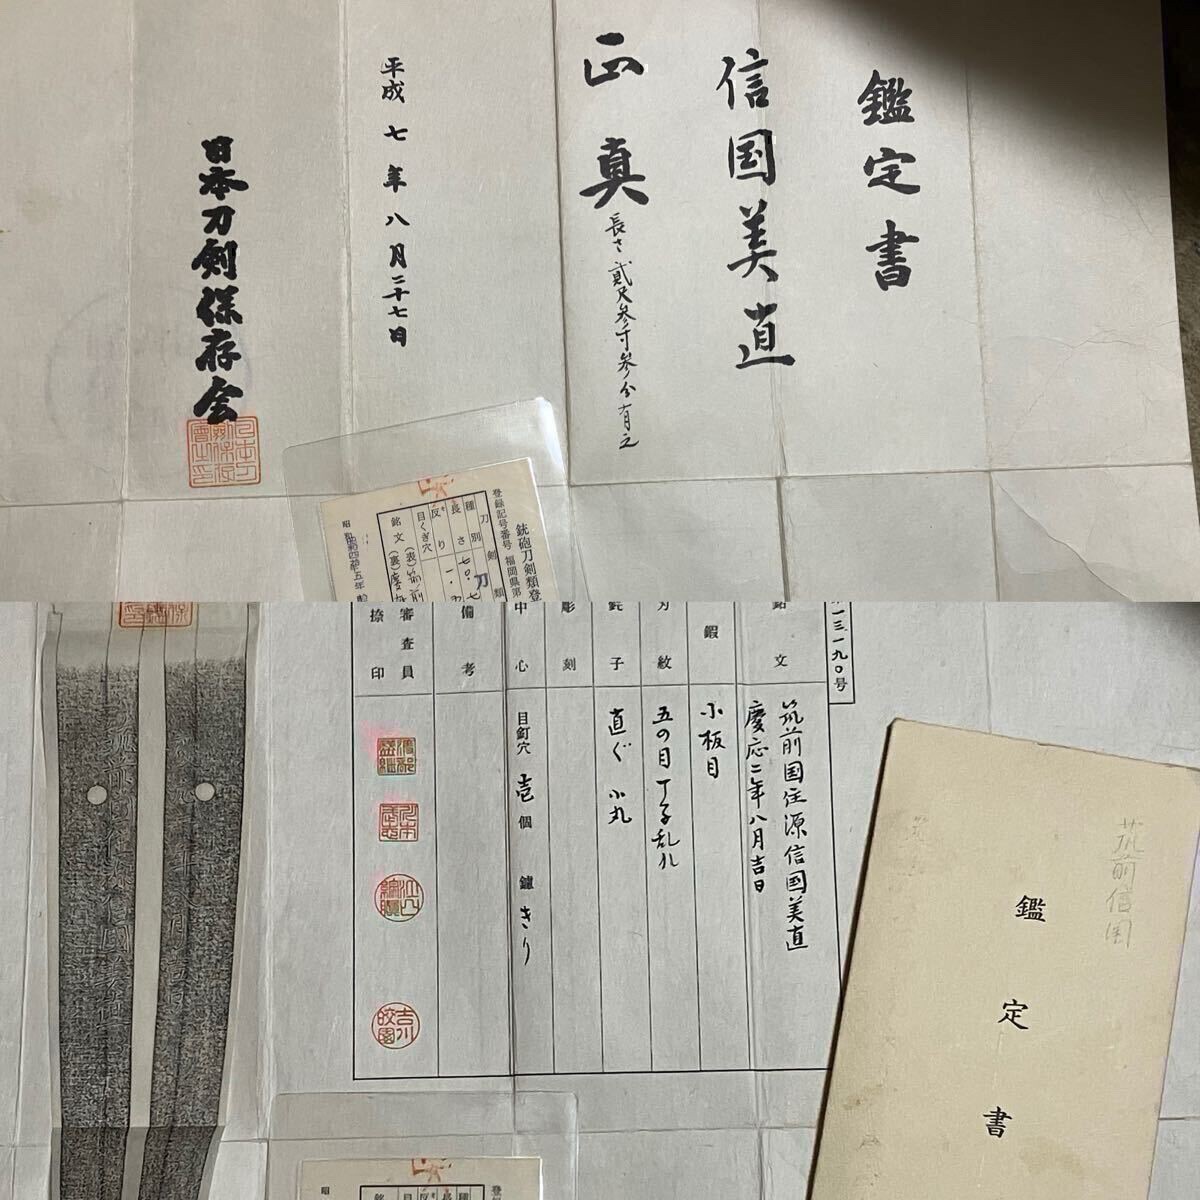 鑑定書
信国美直
正真
長さ貳尺参寸参分有之
平成七年八月二十七日
日本刀剣保存会
銃砲刀剣類登
登録記号番号 福岡県第
刀剣類
種別 刀
長さ 七〇.七
反り 一.
目くぎ穴
銘文 (表)筑前
(裏)慶
昭和四五年
一三一九〇号
銘文 筑前国住源信国美直
慶応二年八月吉日
鍜 小板目
刃紋 五の目丁子乱れ
鋩子 直ぐ 小丸
彫刻
中心 目釘穴 壱個 鑢 きり
備考
審査員
捺印
吉川皎園
筑前信国
鑑定書